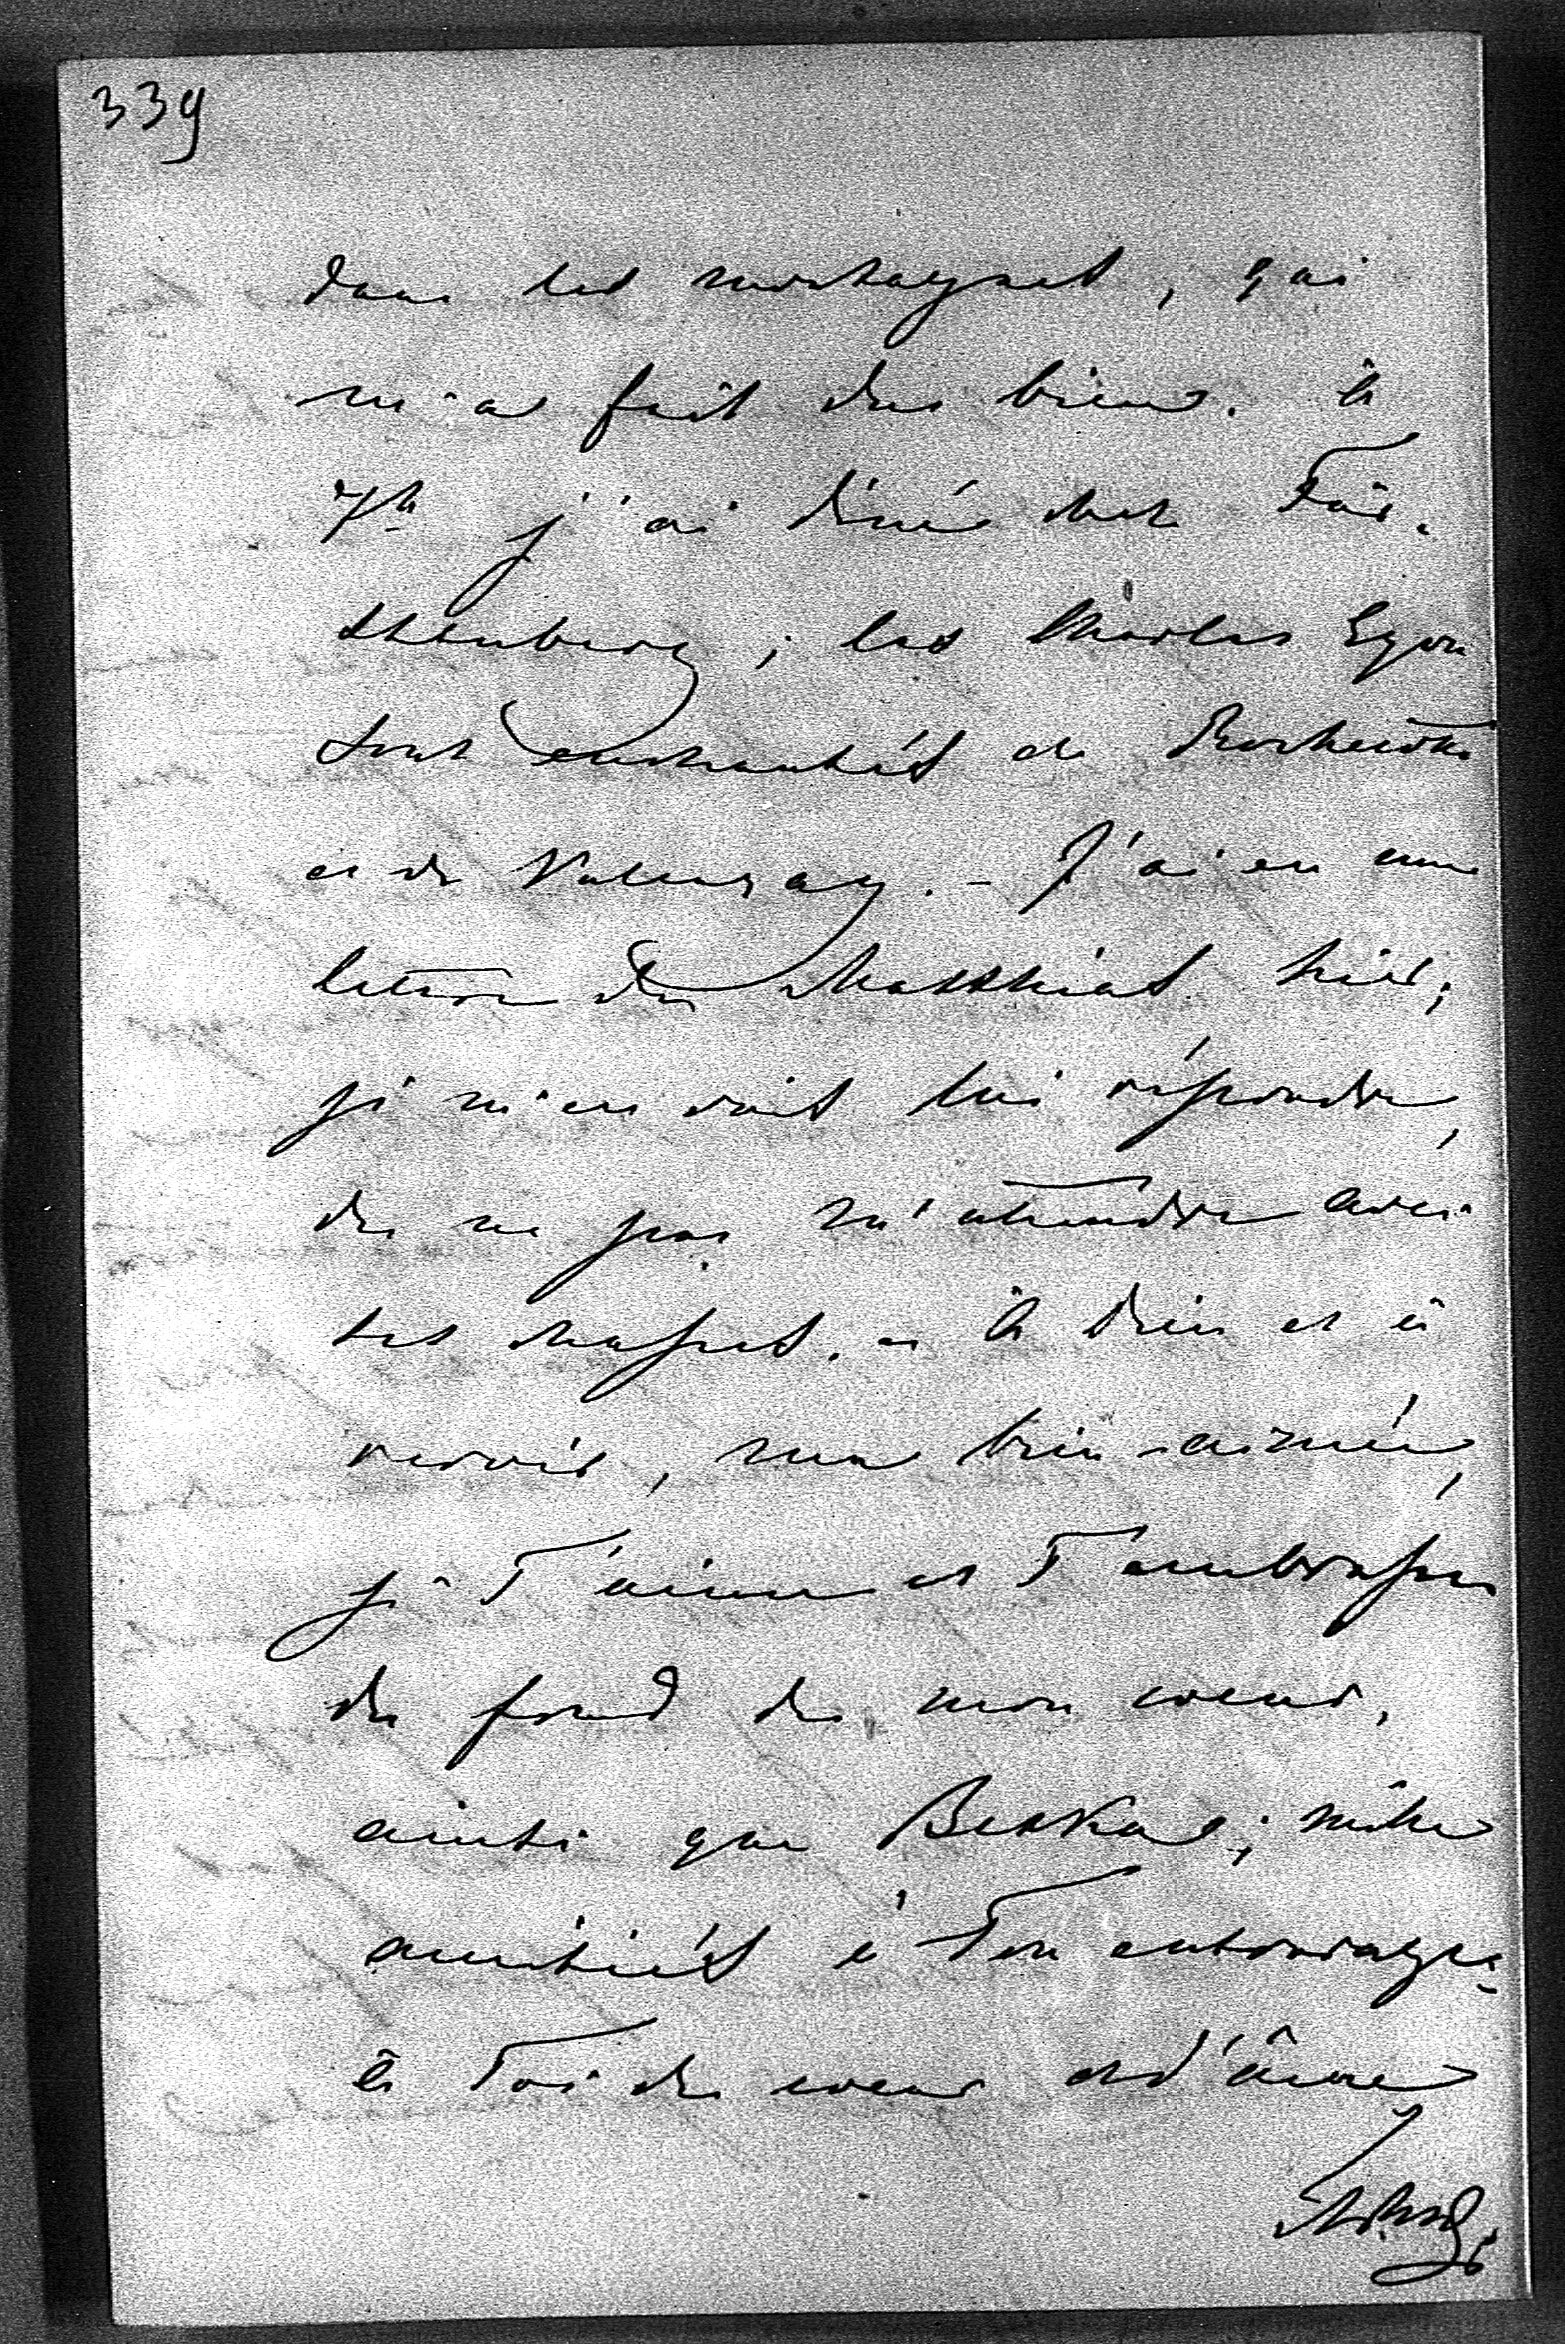 339
dans les montagnes, qui
m'a fait du bien. à
7h j'ai dîné chez Für-
stenberg; les Charles Egon
sont enchantés de Rochecotte
et de Valençay. - J'ai eu une
lettre de Matthias hier;
je m'en vais lui répondre,
de ne pas m'attendre avec
ses chasses. - à Dieu et à
revoir, ma bien-aimée,
je T'aime et T'embrasse
du fond de mon coeur,
ainsi que Biska; mille
amitiés à Ton entourage.
à Toi de coeur et d'âme